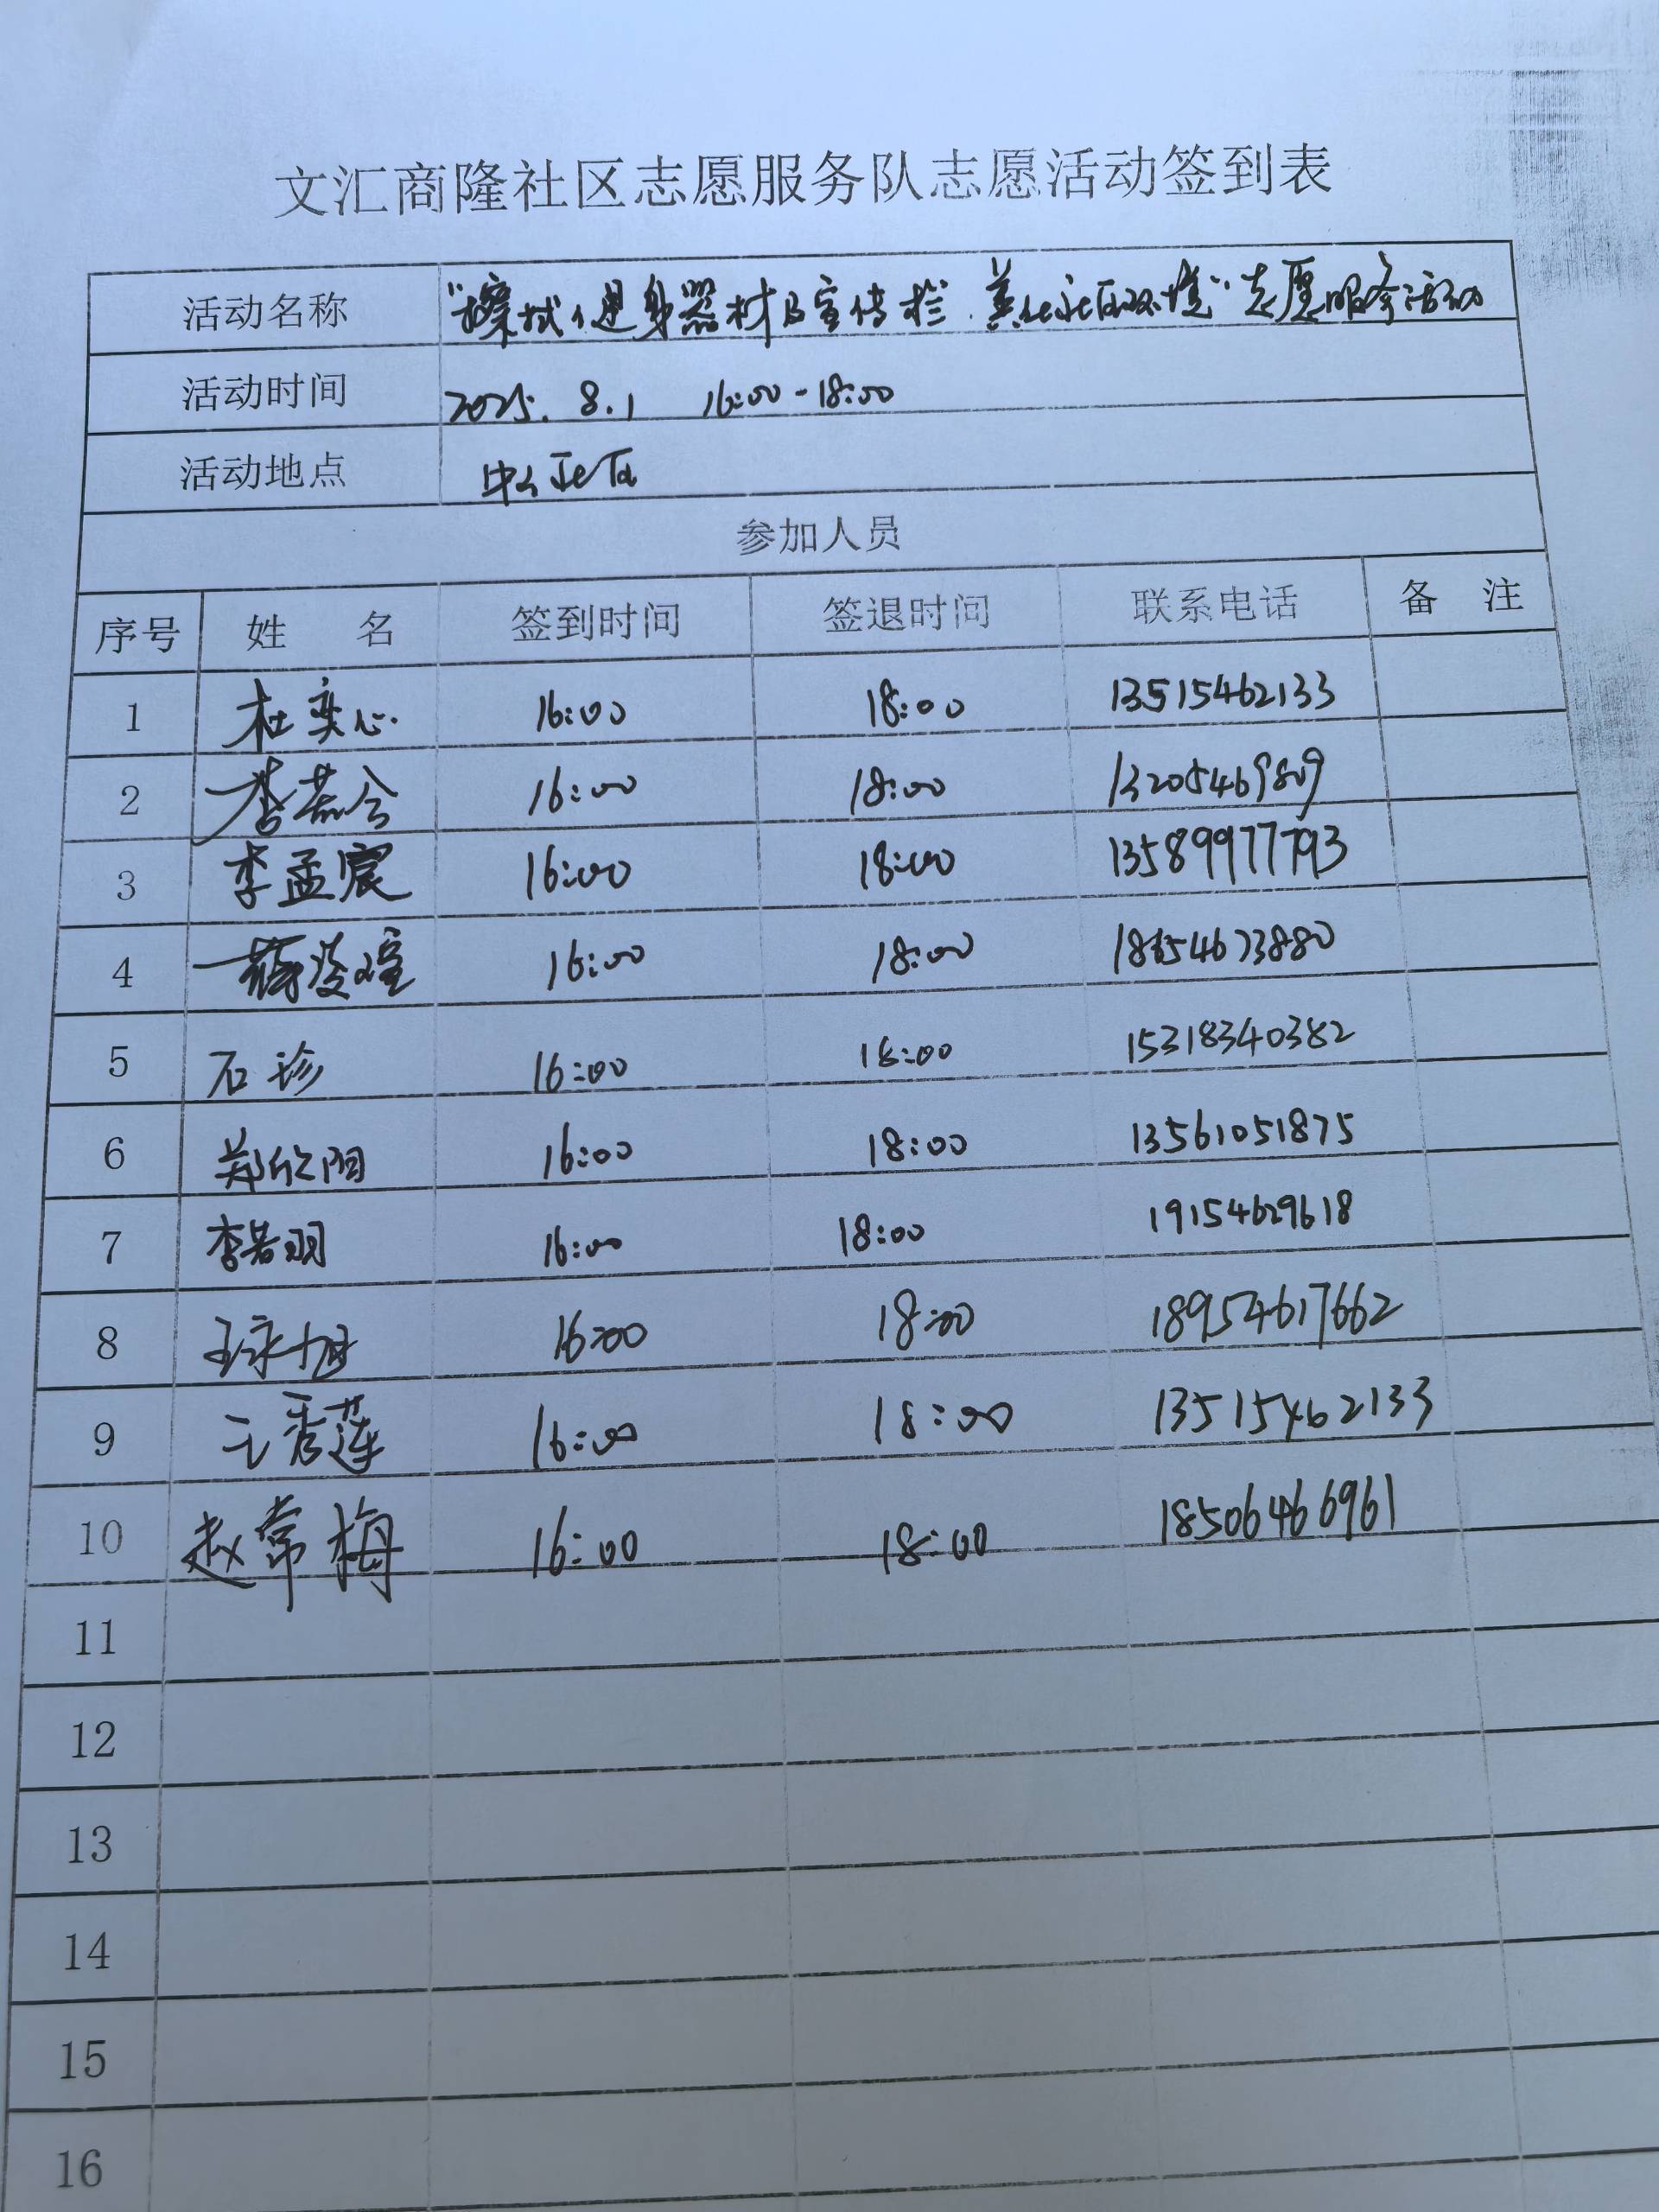 文汇商隆社区志愿服务队志愿活动签到表
活动名称 “擦拭健身器材及宣传栏.美化社区环境”志愿服务活动
活动时间 2025.8.1 16:00-18:00
活动地点 中心社区
参加人员
序号 姓 名 签到时间 签退时间 联系电话 备 注
1 杜奕心 16:00 18:00 13515462133
2 李若兮 16:00 18:00 13205469809
3 李孟宸 16:00 18:00 13589977793
4 16:00 18:00 18654673880
5 石珍 16:00 18:00 15318340382
6 郑欣阳 16:00 18:00 13561051875
7 李若羽 16:00 18:00 19154629618
8 16:00 18:00 18954617662
9 王秀莲 16:00 18:00 13515462133
10 赵常梅 16:00 18:00 18506466961
11
12
13
14
15
16